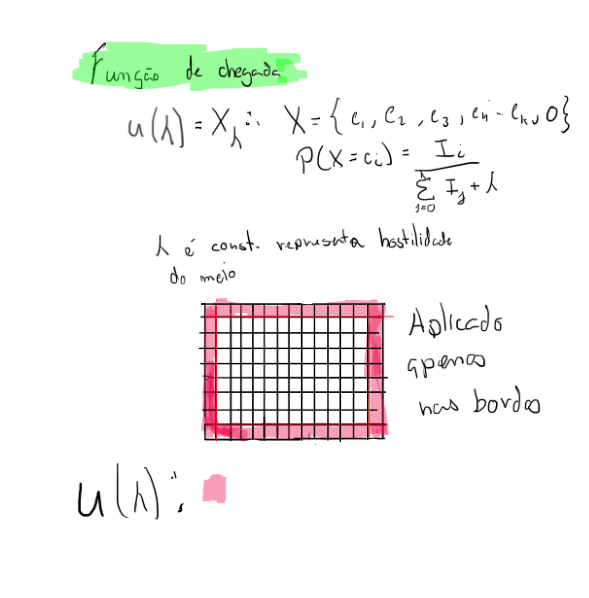 Função de chegada
u(λ) = X_λ ∴ X = { c₁, c₂, c₃, c₄ ... cₙ, 0 }
P(X = ci) = I_i / (∑_{j=0}^{n} I_j + λ)
λ é const. representa hostilidade
do meio
Aplicado
apenas
nas bordas
u(λ) :